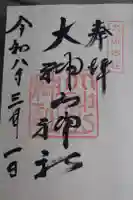 奉拝
大神山神社
令和八年三月一日